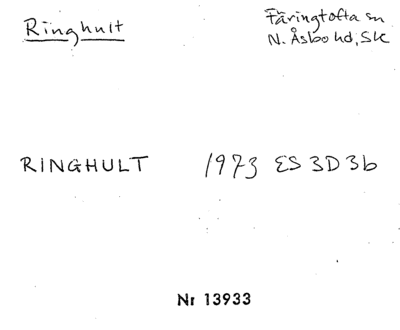 Ringhult
Färingtofta sn
N. Åsbo hd, Sk
RINGHULT 1973 ES 3D3b
Nr 13933